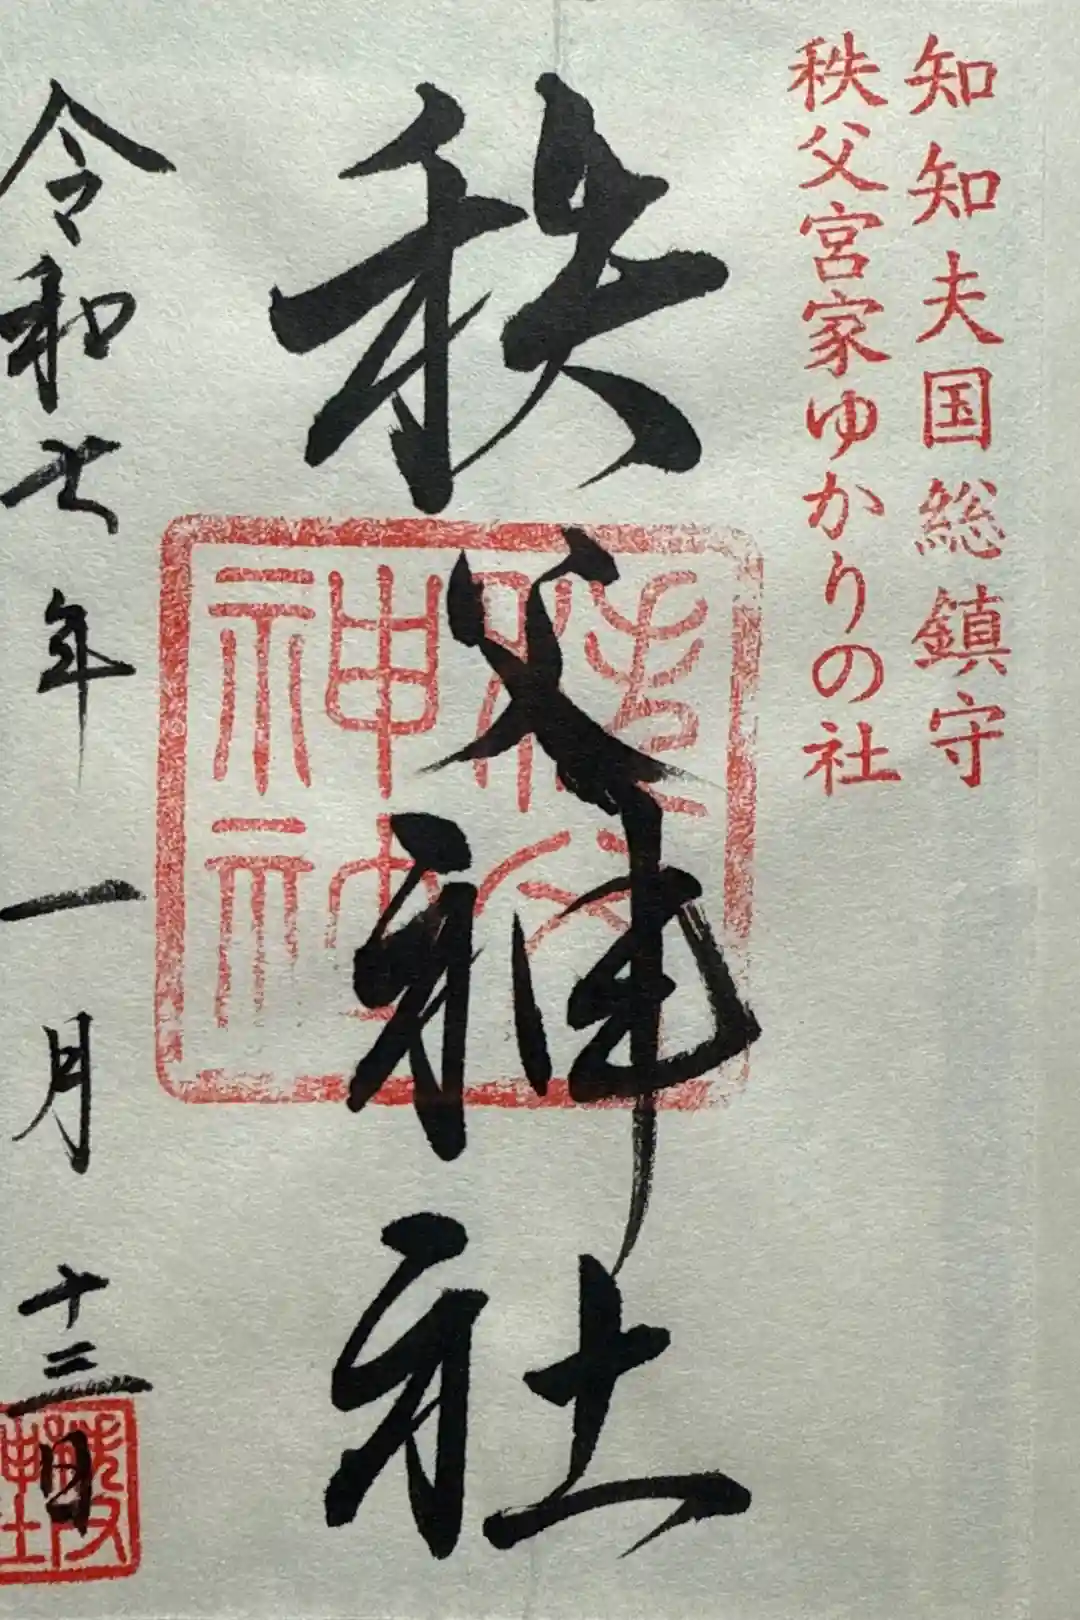 知知夫国総鎮守
秩父宮家ゆかりの社
秩父神社
秩父神社
令和七年一月十三日
秩父神社